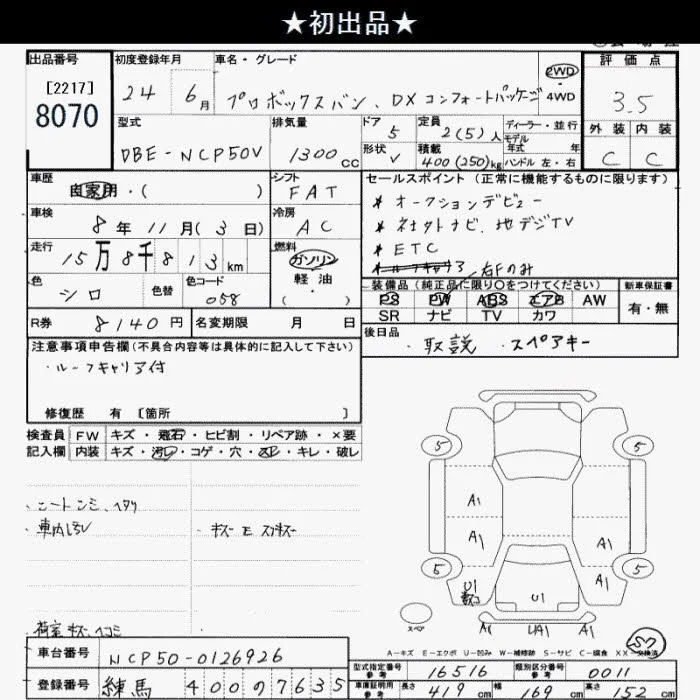 ★初出品★
出品番号
[2217]
8070
初度登録年月
24 6月
車名・グレード
プロボックスバン、DXコンフォートパッケージ
2WD
4WD
評価点
3.5
外装 内装
C C
型式
DBE-NCP50V
排気量
1300cc
ドア 5
形状 V
定員 2(5)人
積載 400(250)kg
ディーラー・並行
モデル年式 年
ハンドル 左・右
車歴
自家用・( )
シフト
FAT
車検
8年11月(3日)
冷房
AC
走行
15万8千813km
燃料
ガソリン
軽油
( )
色
シロ
色替
色コード
058
R券 8140円
名変期限 月 日
セールスポイント(正常に機能するものに限ります)
* オークションデビュー
* 社外ナビ、地デジTV
* ETC
右Fのみ
装備品(純正品に限り○をつけてください)
PS PW ABS エアB AW
SR ナビ TV カワ
新車保証書
有・無
後日品
・取説 ・スペアキー
注意事項申告欄(不具合内容等は具体的に記入して下さい)
・ルーフキャリア付
修復歴 有 [箇所 ]
検査員
記入欄
FW キズ・飛石・ヒビ割・リペア跡・×要
内装 キズ・汚レ・コゲ・穴・スレ・キレ・破レ
・シートシミ、ヘタリ
・車内
荷室 キズ、ヘコミ
5 5
A1
A1 A1
A1 A1
5 5
U1
U1
スペア
A1
A-キズ E-エクボ U-凹み W-補修跡 S-サビ C-腐食 XX-交換済
車台番号
NCP50-0126926
登録番号
練馬 400 の 7635
型式指定番号
参考
16516
類別区分番号
参考
0011
車庫証明用
参考
長さ 419cm
幅 169cm
高さ 152cm